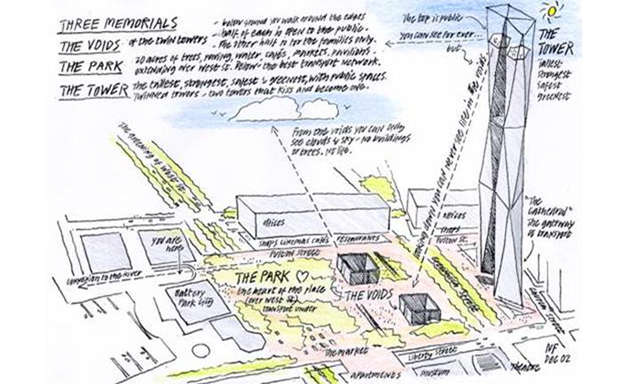 THREE MEMORIALS - below ground you walk around the edges
- half of each is open to the public -
THE VOIDS of the twin towers - the other half is for the families only.
THE PARK 20 acres of trees, paving, water, cafés, markets, pavilions -
extending over West St. Below - the best transport network.
THE TOWER the tallest, strongest, safest & greenest, with public spaces.
twinned towers - two towers that kiss and become one.
The top is public
you can see for ever...
but
THE
TOWER
tallest
strongest
safest
greenest
The greening of West St.
From the voids you can only
see clouds & sky - no buildings
or trees. No life.
looking down you can never see life in the voids
"The
Cathedral"
The gateway
of transport
offices
offices
shops
Fulton St.
shops cinemas cafés restaurants
Fulton Street
you are
here
connection to the river
THE PARK ♡
the heart of the place
(over West St.)
transport under
THE VOIDS
Greenwich Street
Battery
Park City
The market
apartments
museum
Liberty Street
Theatre
Church Street
NF
DEC 02